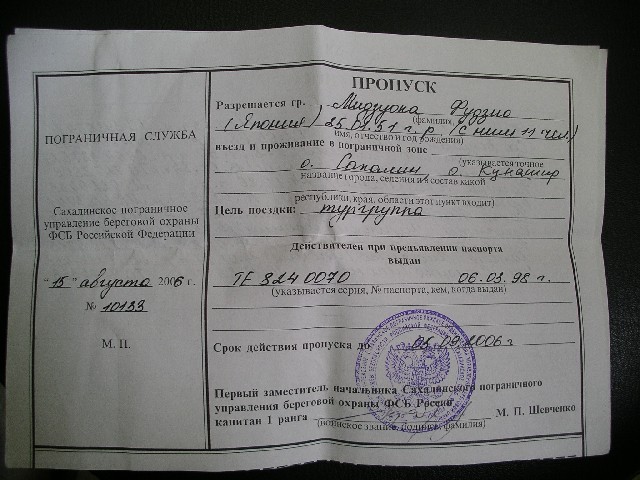 ПОГРАНИЧНАЯ СЛУЖБА
Сахалинское пограничное
управление береговой охраны
ФСБ Российской Федерации
"15" августа 2006 г.
№ 10133
М. П.
ПРОПУСК
Разрешается гр. Мидзуока Фудзио
(фамилия,
(Япония) 25.01.51 г.р. (с ним 11 чел.)
имя, отчество и год рождения)
въезд и проживание в пограничной зоне
о. Сахалин, о. Кунашир
(указывается точное
название города, селения и в состав какой
республики, края, области этот пункт входит)
Цель поездки: тургруппа
Действителен при предъявлении паспорта
выдан
ТЕ 8240070 06.03.98 г.
(указывается серия, № паспорта, кем, когда выдан)
Срок действия пропуска до 09.2006 г
Первый заместитель начальника Сахалинского пограничного
управления береговой охраны ФСБ России
капитан 1 ранга М. П. Шевченко
(воинское звание, подпись, фамилия)